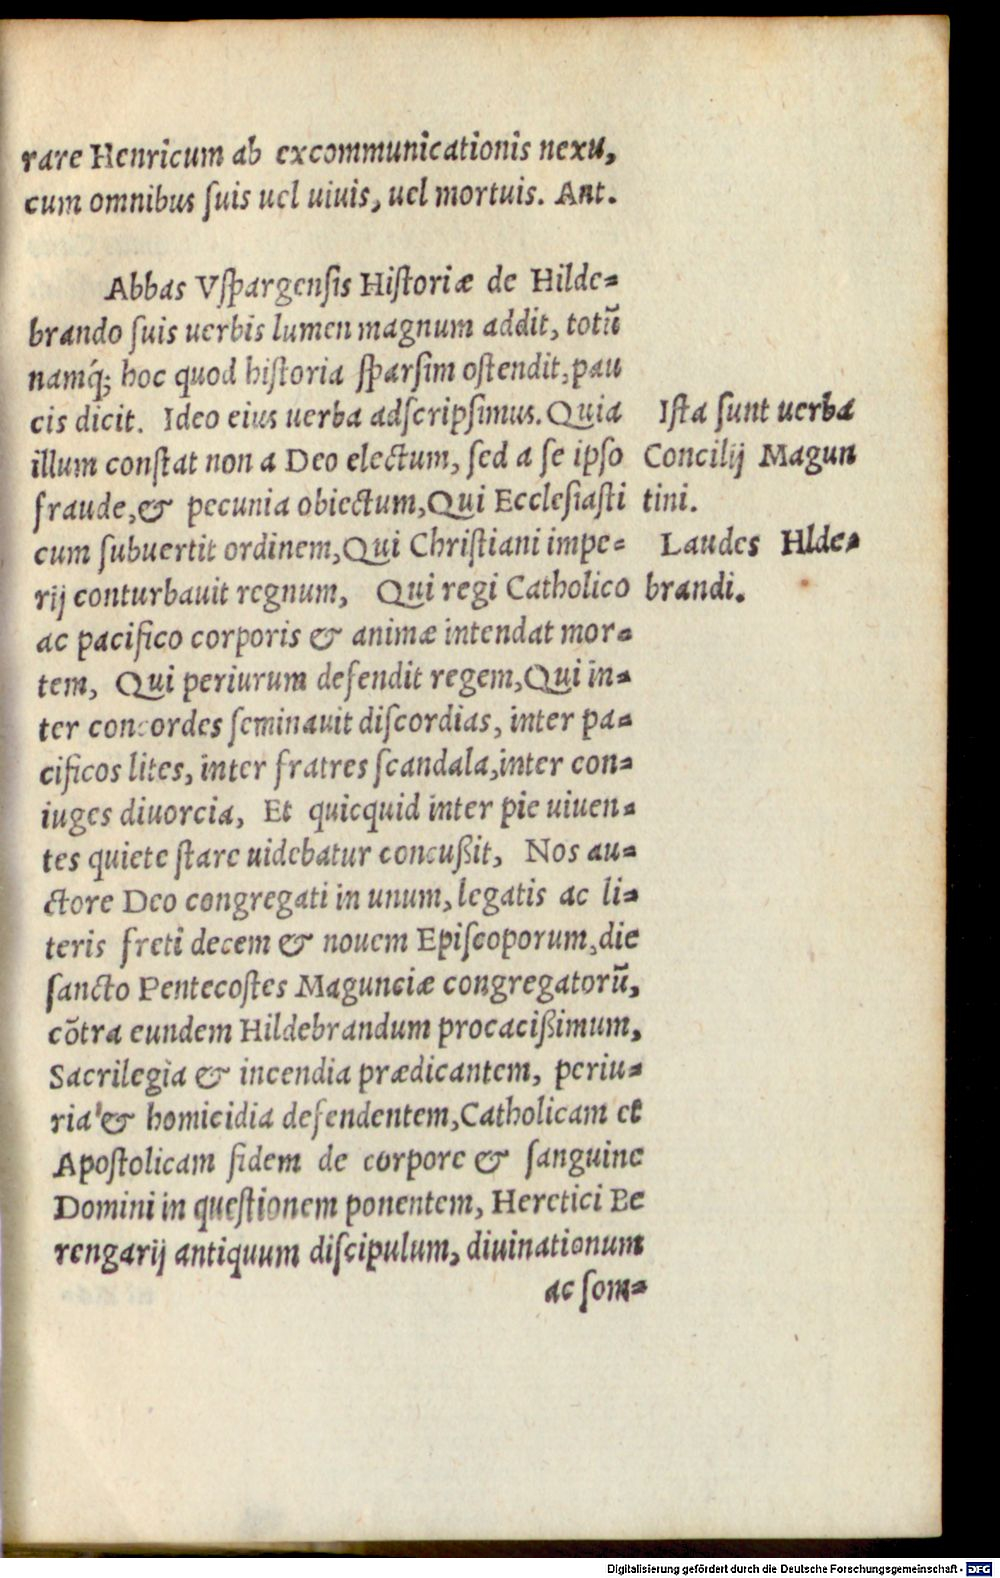 rare Henricum ab excommunicationis nexu,
cum omnibus ſuis uel uiuis, uel mortuis. Ant.
Abbas Vſpargenſis Hiſtoriæ de Hilde⸗
brando ſuis uerbis lumen magnum addit, totũ
namq́; hoc quod hiſtoria ſparſim oſtendit, pau
cis dicit. Ideo eius uerba adſcripſimus. Quia
illum conſtat non a Deo electum, ſed a ſe ipſo
fraude, & pecunia obiectum, Qui Eccleſiaſti
cum ſubuertit ordinem, Qui Chriſtiani impe⸗
rij conturbauit regnum, Qui regi Catholico
ac pacifico corporis & animæ intendat mor⸗
tem, Qui periurum defendit regem, Qui in⸗
ter concordes ſeminauit diſcordias, inter pa⸗
cificos lites, inter fratres ſcandala, inter con⸗
iuges diuorcia, Et quicquid inter pie uiuen⸗
tes quiete ſtare uidebatur concußit, Nos au⸗
ctore Deo congregati in unum, legatis ac li⸗
teris freti decem & nouem Epiſcoporum, die
ſancto Pentecoſtes Magunciæ congregatorũ,
cõtra eundem Hildebrandum procacißimum,
Sacrilegia & incendia prædicantem, periu⸗
ria & homicidia defendentem, Catholicam et
Apoſtolicam fidem de corpore & ſanguine
Domini in queſtionem ponentem, Heretici Be
rengarij antiquum diſcipulum, diuinationum
ac ſom⸗
Iſta ſunt uerba
Concilij Magun
tini.
Laudes Hlde⸗
brandi.
Digitalisierung gefördert durch die Deutsche Forschungsgemeinschaft - DFG